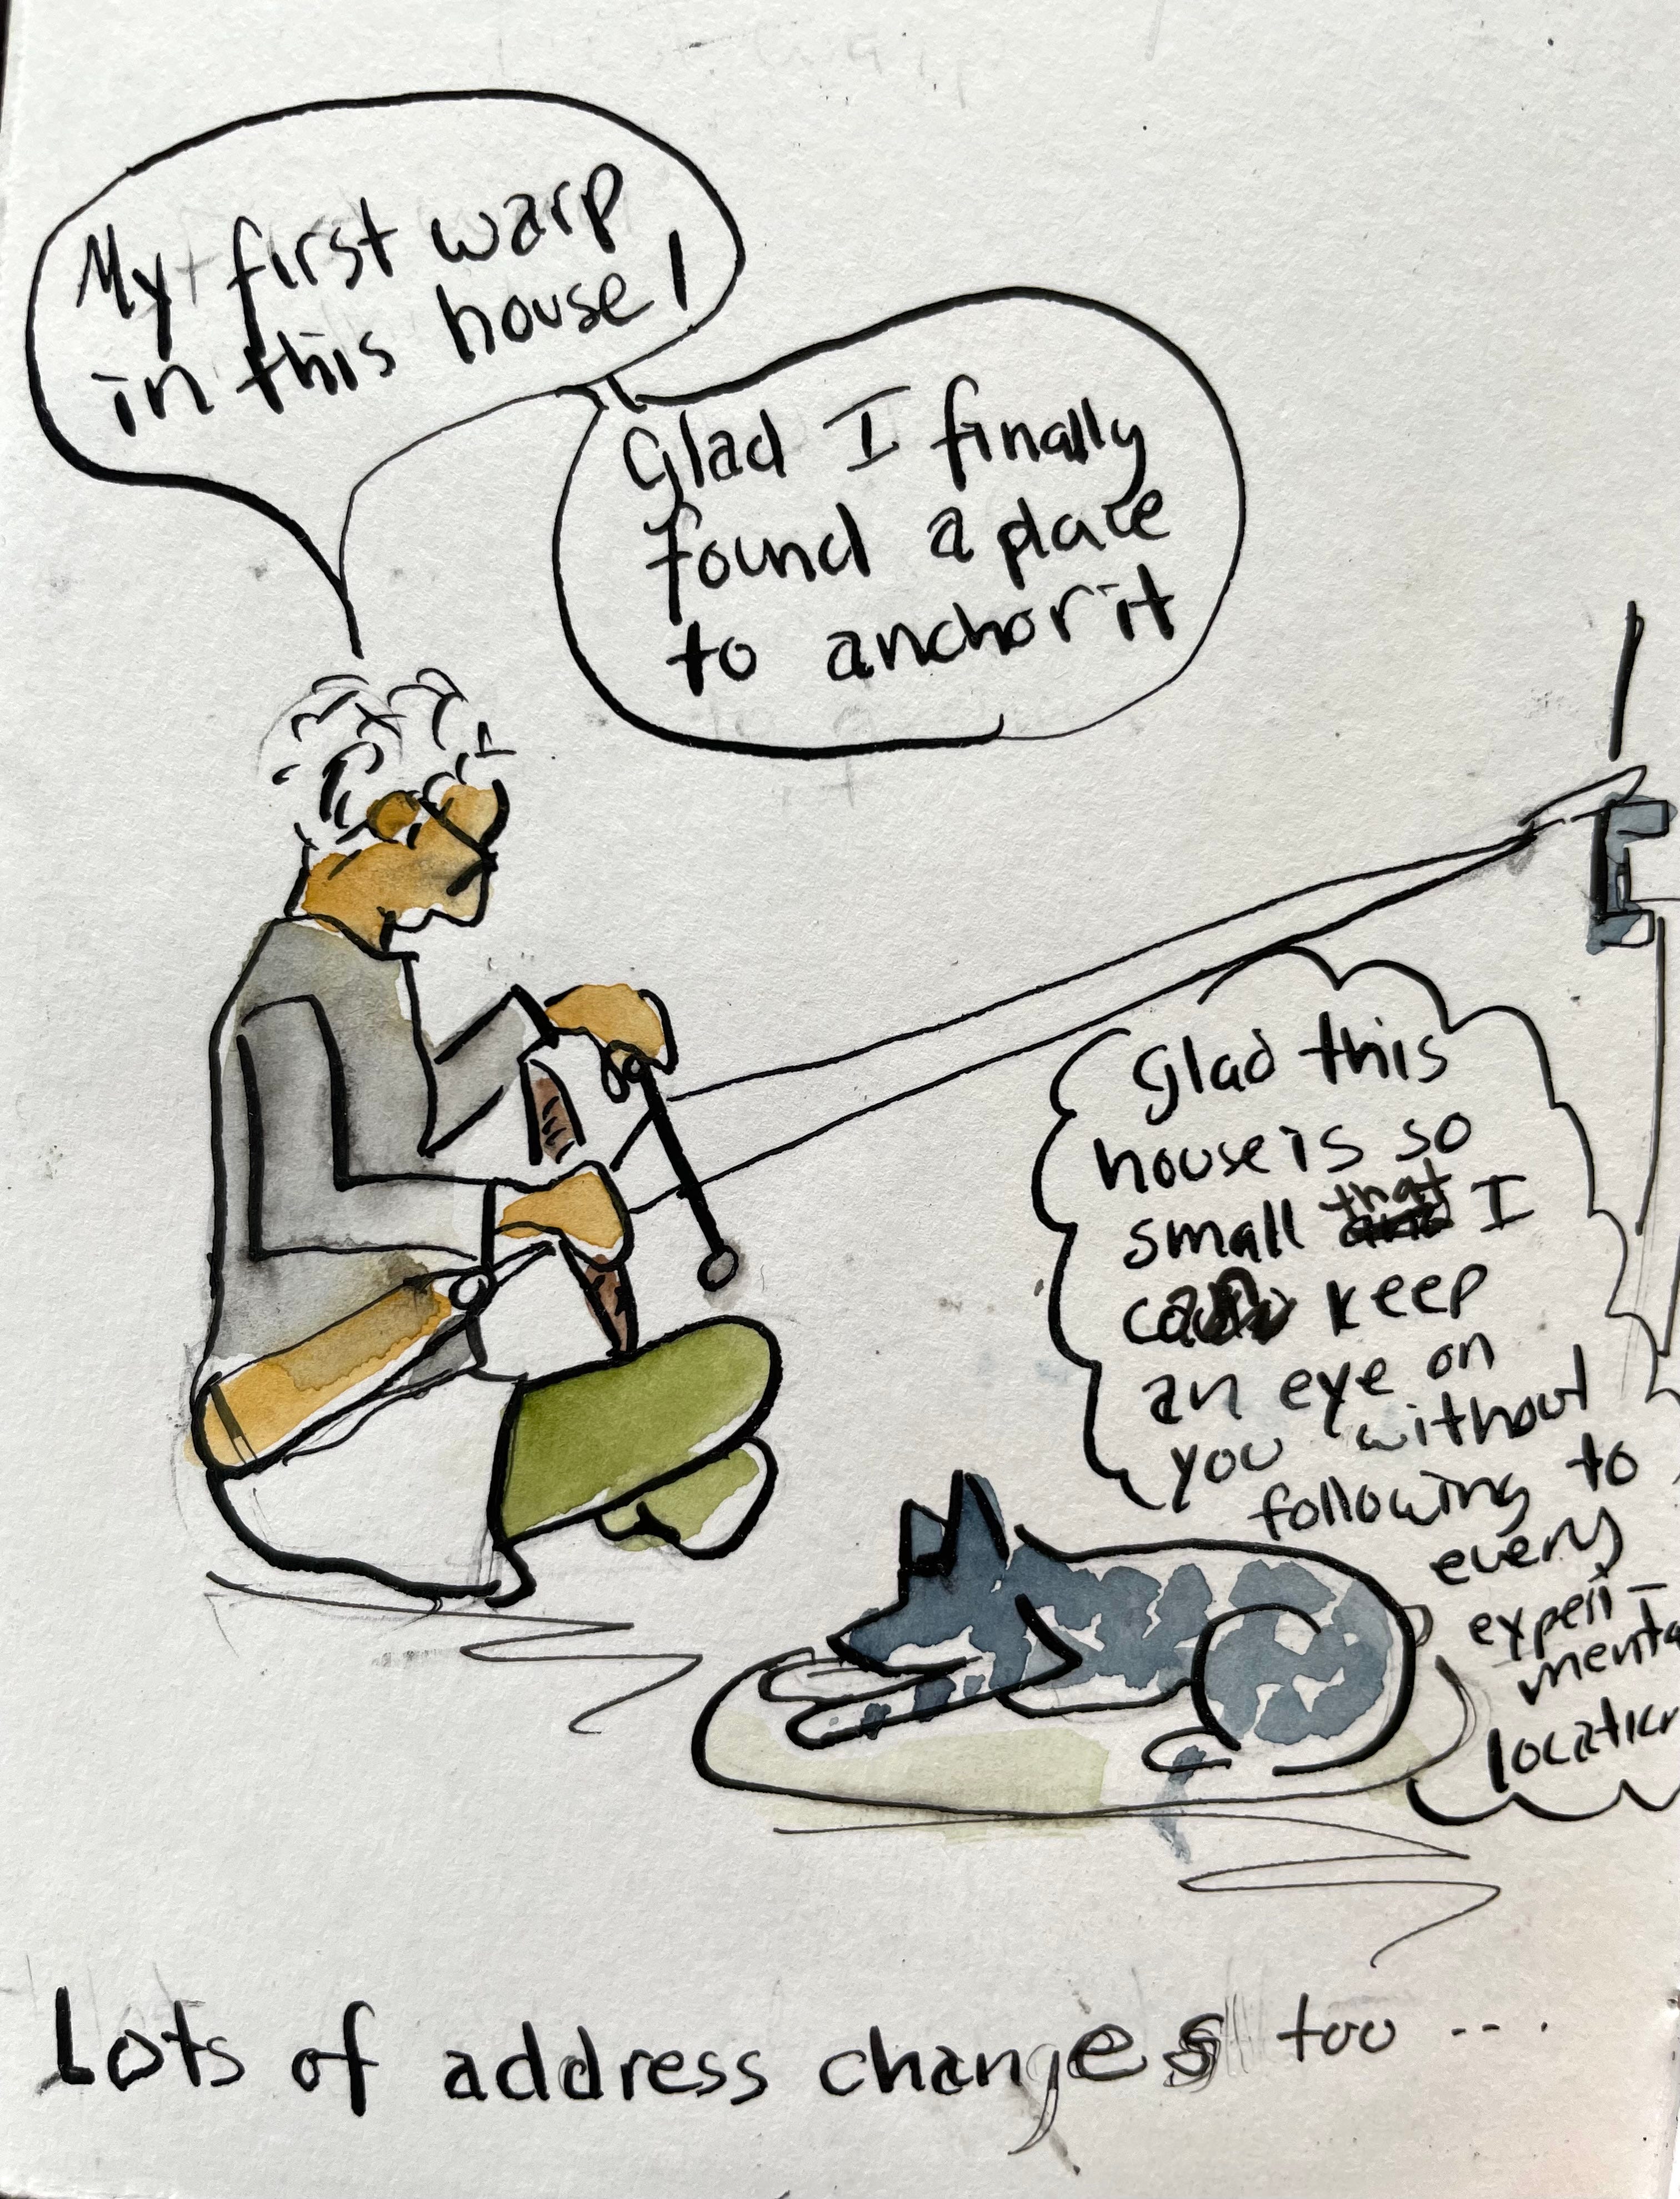 My first warp
in this house!
Glad I finally
found a place
to anchor it
Glad this
house is so
small that I
can keep
an eye on
you without
following to
every
experi-
menta
location
Lots of address changes too ...